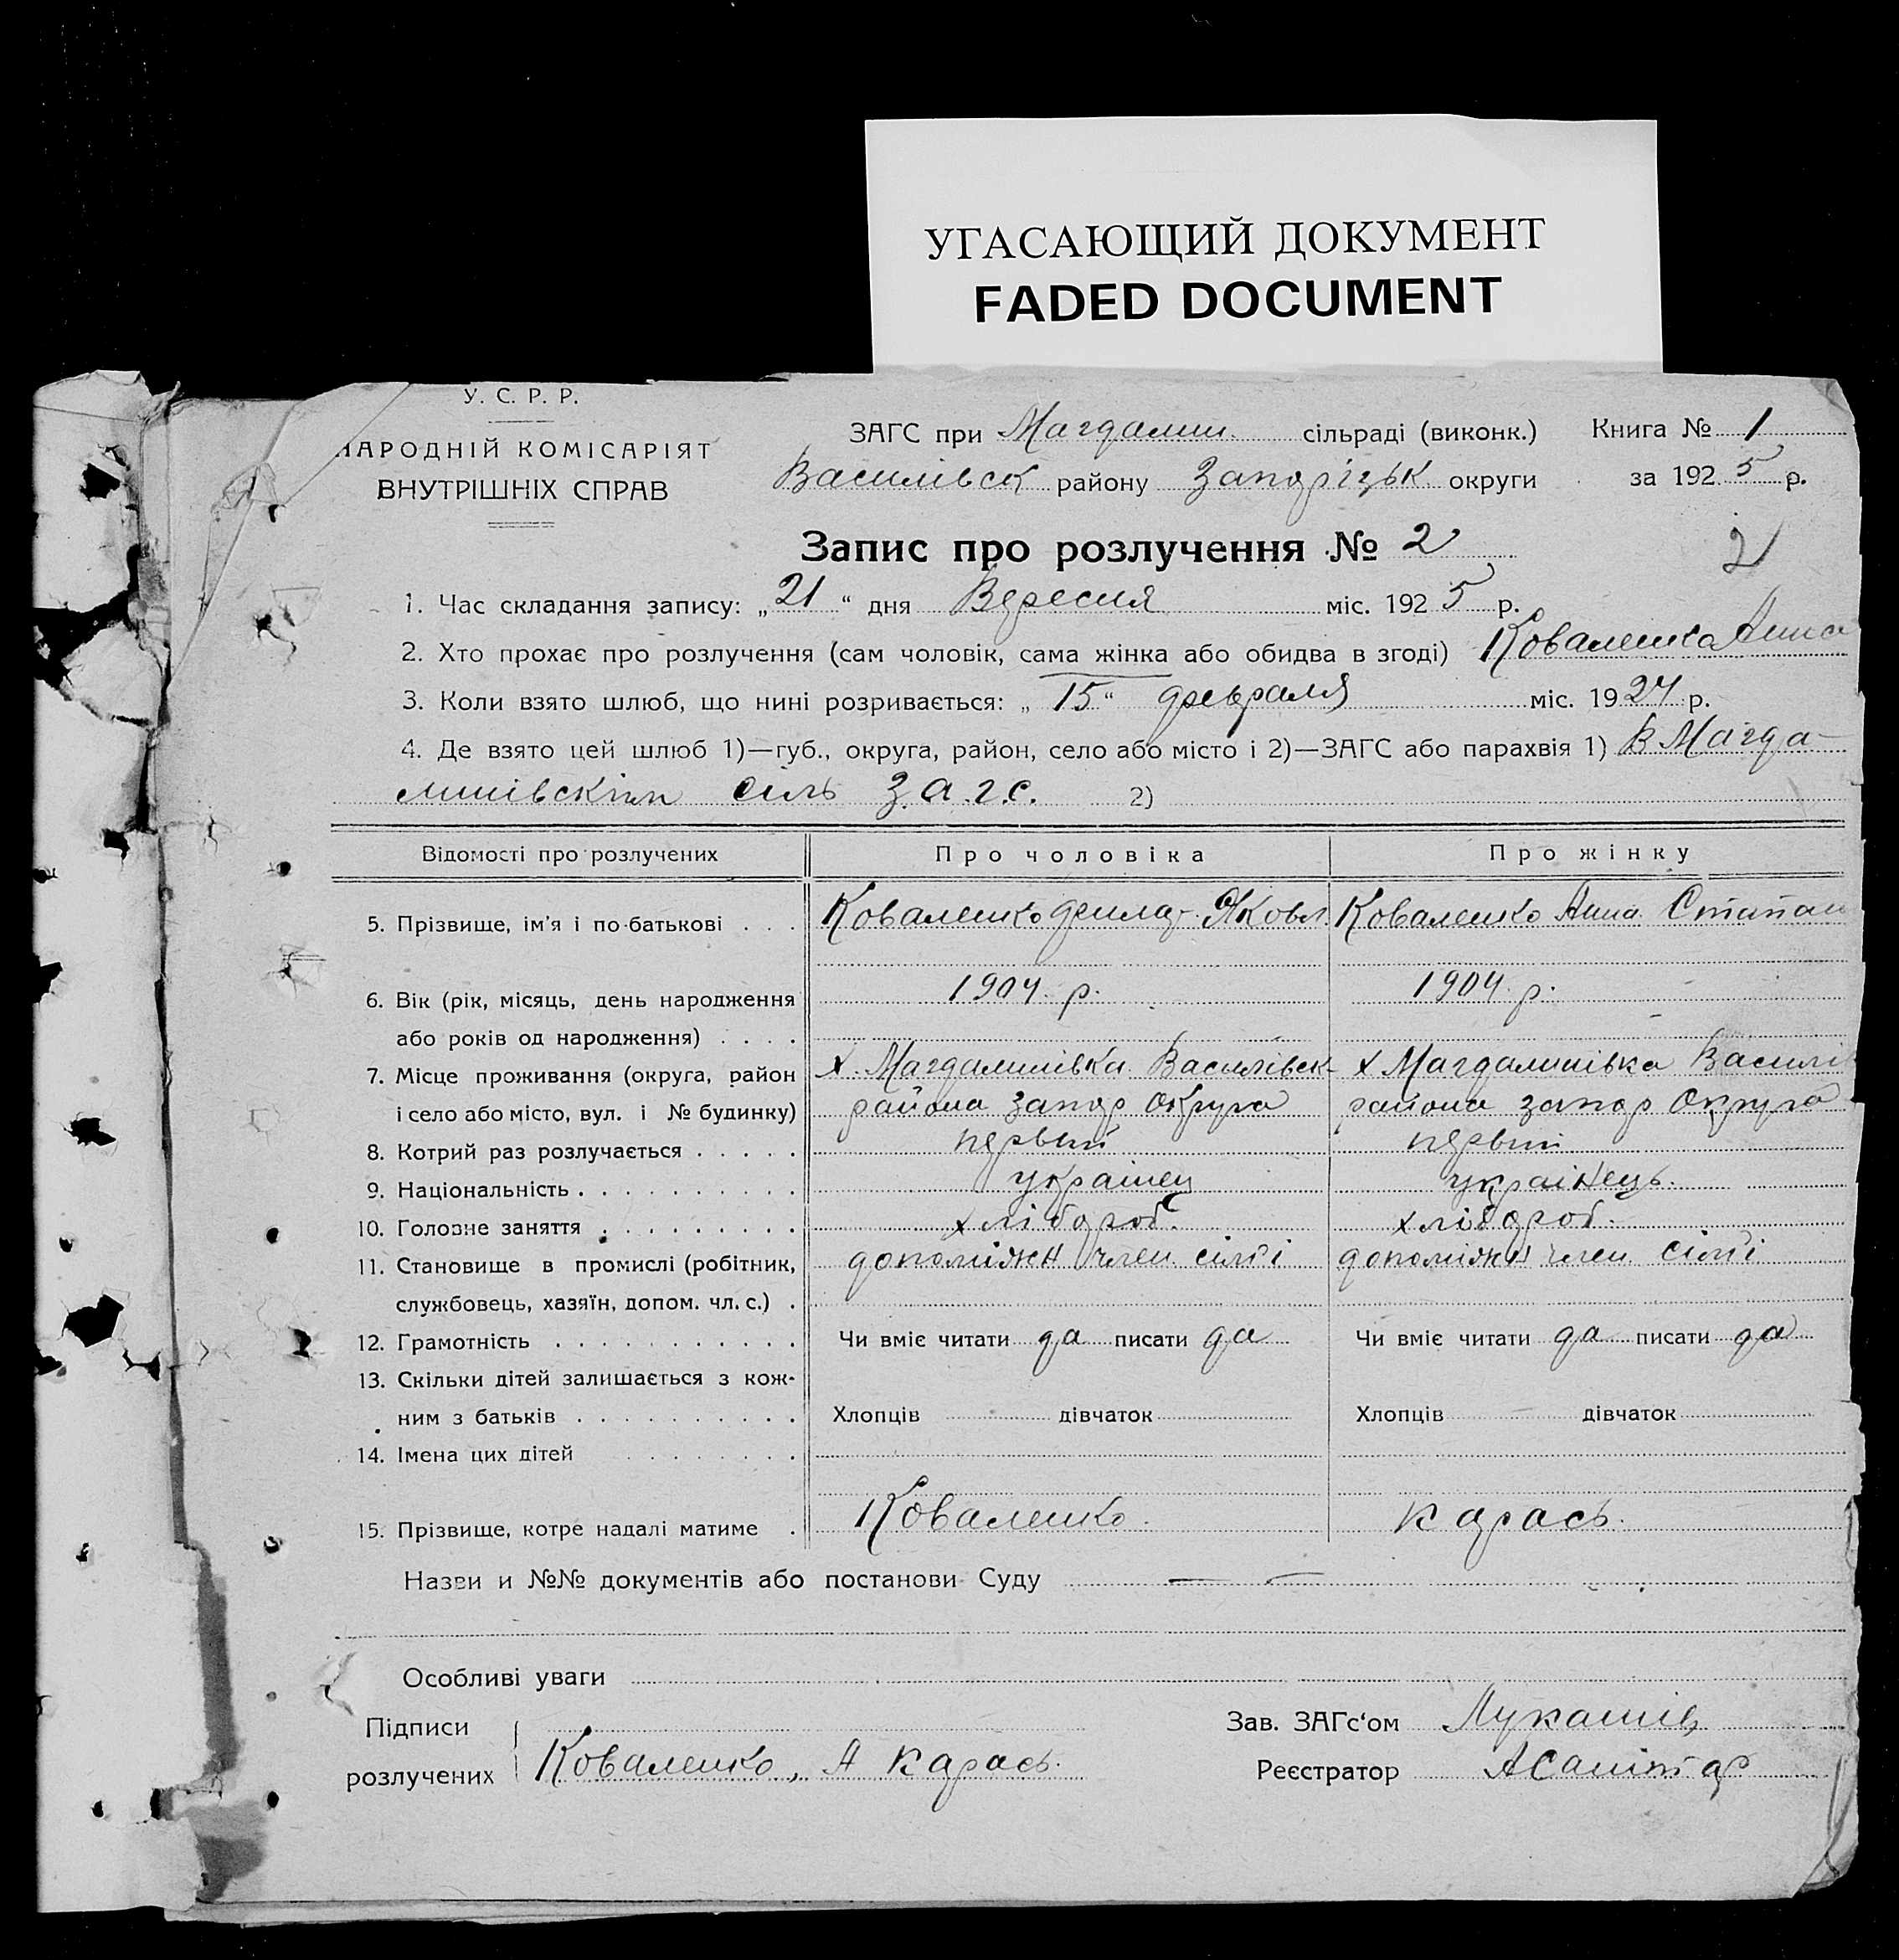 УГАСАЮЩИЙ ДОКУМЕНТ
FADED DOCUMENT
У. С. Р. Р.
НАРОДНІЙ КОМІСАРІЯТ
ВНУТРІШНІХ СПРАВ
ЗАГС при Магдалин. сільраді (виконк.) Книга № 1
Василівск району Запорізьк округи за 1925 р.
Запис про розлучення № 2
2
1. Час складання запису: „21“ дня Вересня міс. 1925 р.
2. Хто прохає про розлучення (сам чоловік, сама жінка або обидва в згоді) Коваленко Анна
3. Коли взято шлюб, що нині розривається: „15“ февраля міс. 1924 р.
4. Де взято цей шлюб 1)—губ., округа, район, село або місто і 2)—ЗАГС або парахвія 1) В Магда-
линівскім сіль З.а.г.с. 2)
Відомості про розлучених Про чоловіка Про жінку
5. Прізвище, ім'я і по-батькові . . . Коваленко Яковл Коваленко Анна Степан
6. Вік (рік, місяць, день народження 1904. р. 1904. р.
або років од народження) . . . .
7. Місце проживання (округа, район х. Магдалинівка Василівск- х Магдалинівка Василів
і село або місто, вул. і № будинку) района запор округа района запор округа
8. Котрий раз розлучається . . . . . первый первый
9. Національність . . . . . . . . . . українец українець.
10. Головне заняття . . . . . . . . . хлібороб. хлібороб.
11. Становище в промислі (робітник, допоміжн член сім'ї допоміжн член. сім'ї
службовець, хазяїн, допом. чл. с.) .
12. Грамотність . . . . . . . . . . . Чи вміє читати да писати да Чи вміє читати да писати да
13. Скільки дітей залишається з кож-
ним з батьків . . . . . . . . . . Хлопців дівчаток Хлопців дівчаток
14. Імена цих дітей . . . . . . . .
15. Прізвище, котре надалі матиме . Коваленко. Карась.
Назви и №№ документів або постанови Суду — —
Особливі уваги
Підписи Зав. ЗАГс‘ом
розлучених Коваленко, А Карась. Реєстратор